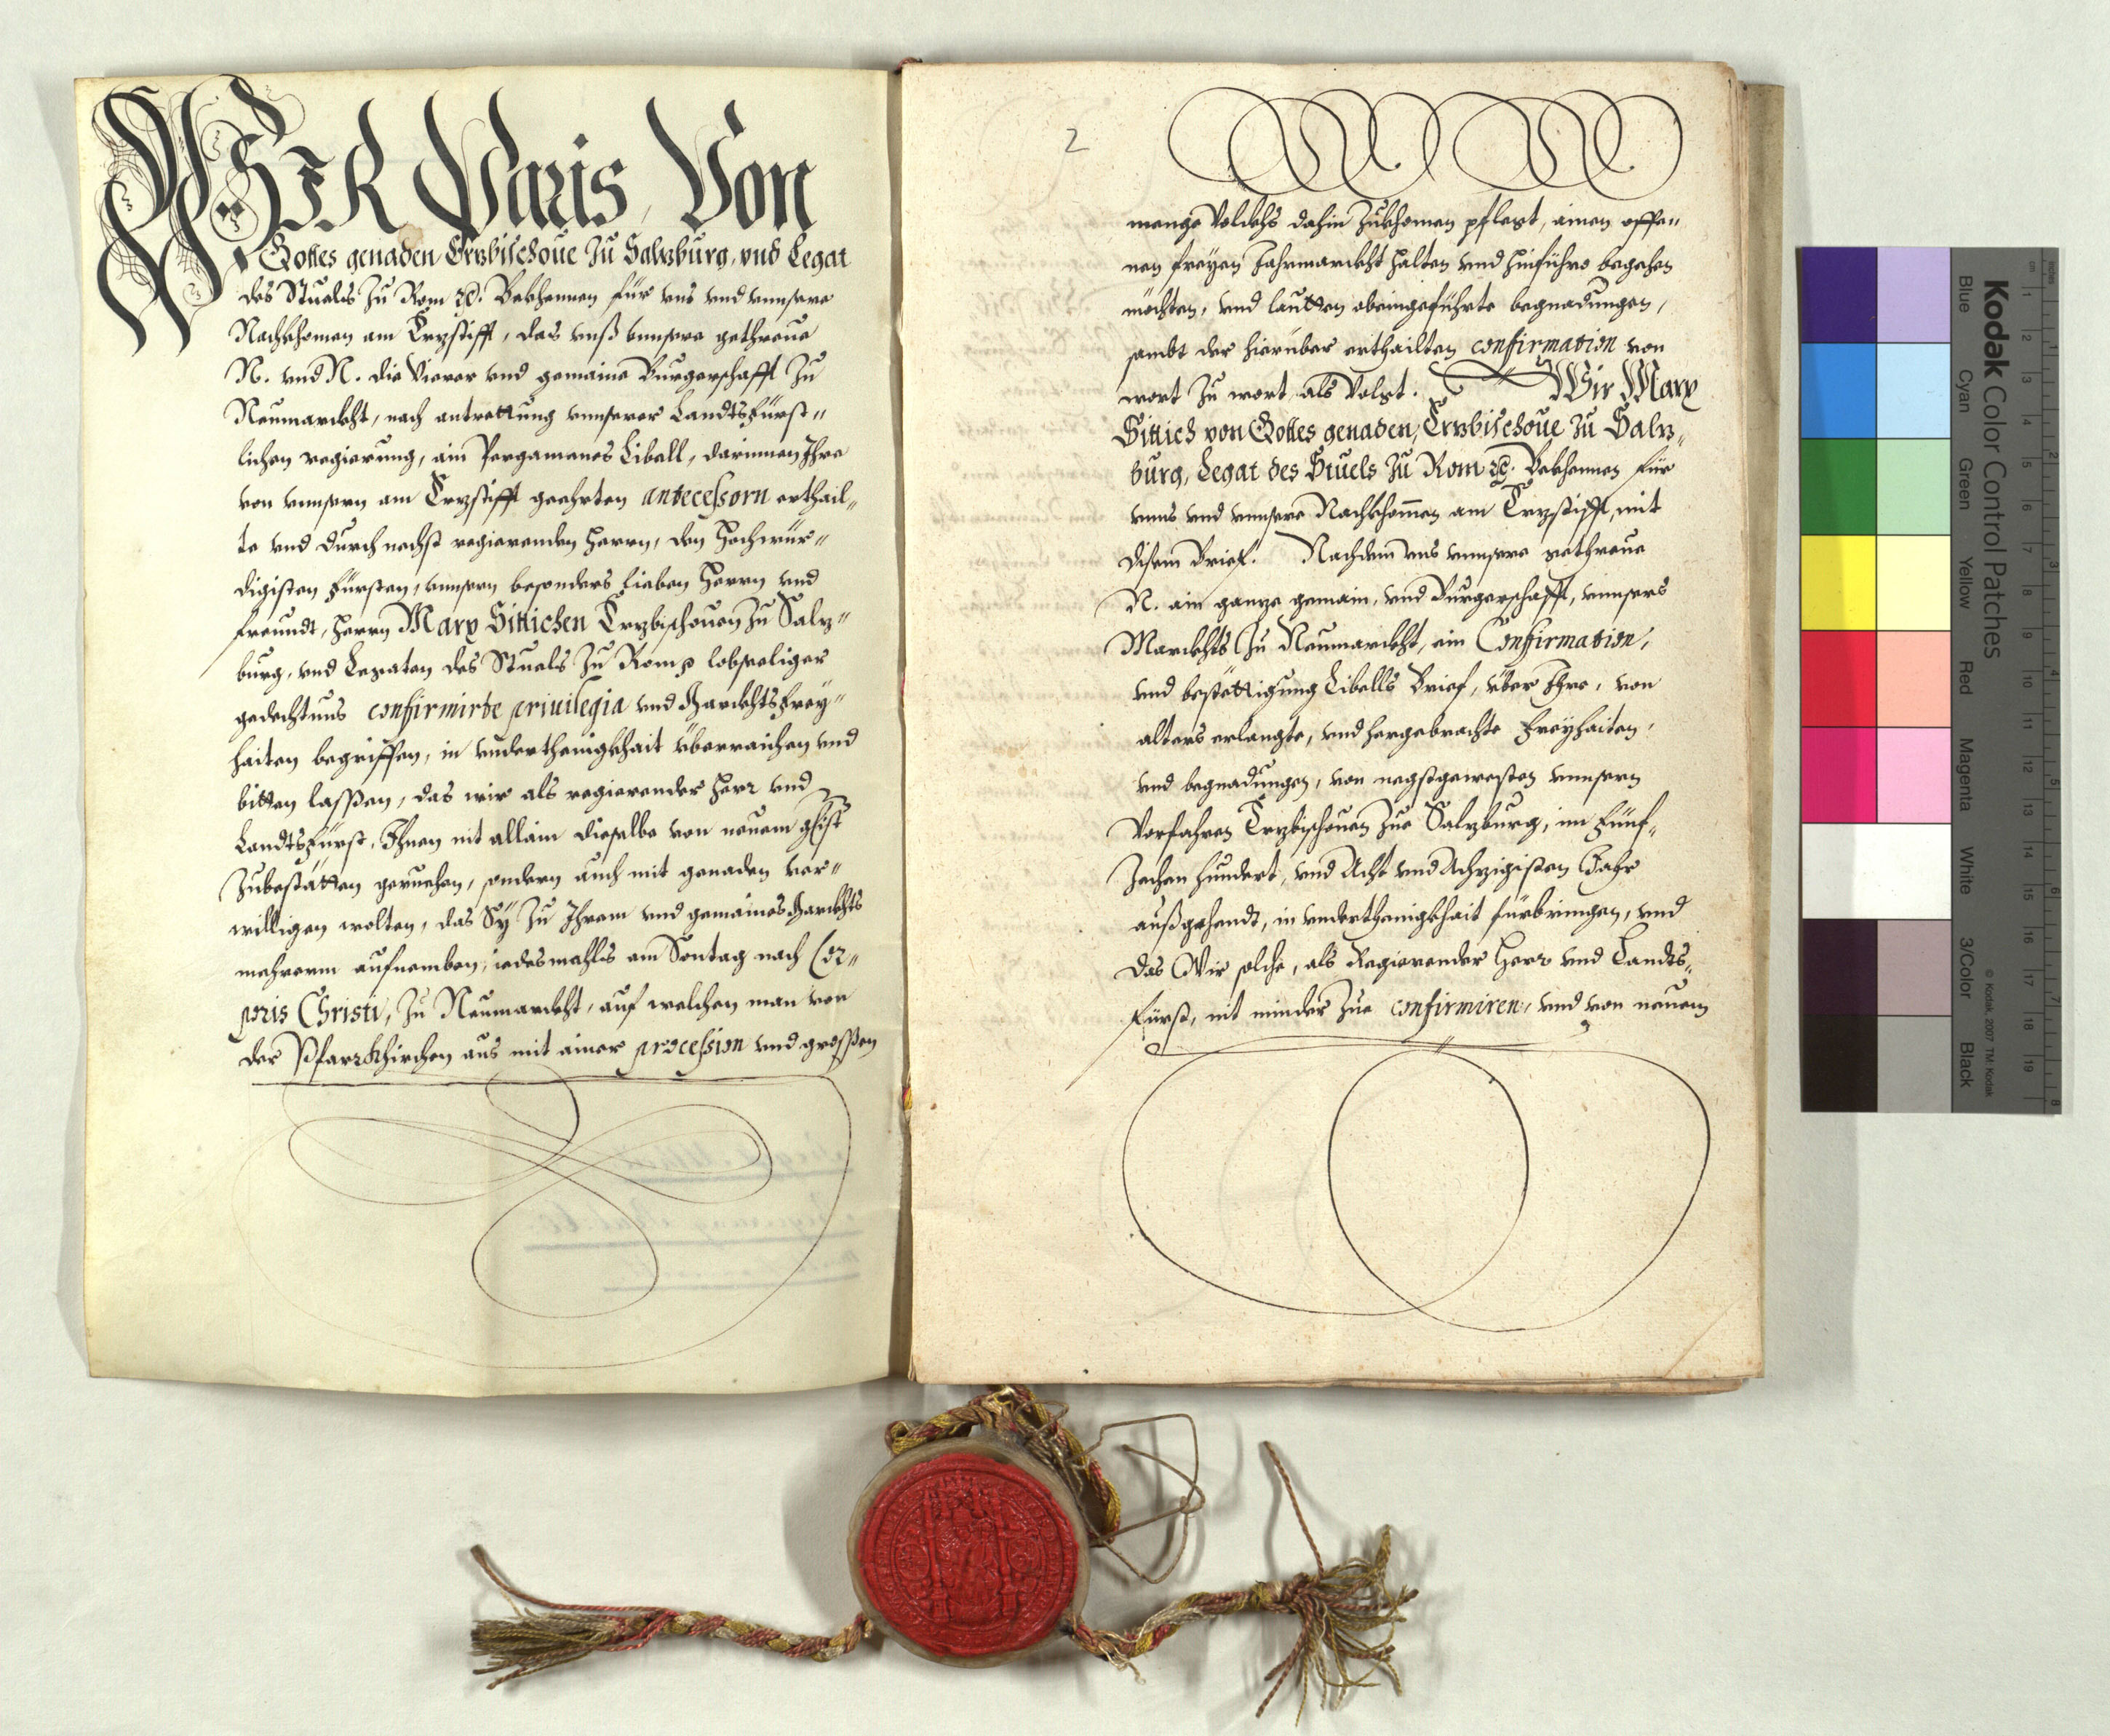 WHIR Paris, Von
Gottes genaden Ertzbischoue Zu Saltzburg, vnd Legat
des Stuels Zu Rom etc. Bekhennen für vns vnd vnnsere
Nachkhomen am Ertzstifft, das vnß vnnsere gethreue
N. vnd N. die Vierer vnd gemaine Burgerschafft Zu
Neumarckht, nach antrettung vnnserer Landtsfürst„
lichen regierung, ain Pergamenes Libell, darinnen Ihre
von vnnsern am Ertzstifft geehrten antecessorn erthail„
te vnd durch nechst regierenden Herrn, den Hochwür„
digisten Fürsten, vnnsern besonders lieben Herrn vnd
freundt, Herrn Marx Sittichen Ertzbischouen Zu Saltz„
burg, vnd Legaten des Stuels Zu Rom lobseeliger
gedechtnus confirmirte priuilegia vnd Marckhtsfrey„
haiten begriffen, in vnderthenigkhait überraichen vnd
bitten lassen, das wir als regierender Herr vnd
Landtsfürst, Ihnen nit allain dieselbe von neuem gdist
Zubestätten geruehen, sondern auch mit genaden ver„
willigen wolten, das Sÿ Zu Ihrem vnd gemaines Marckhts
mehrerm aufnemben, iedesmahls am Sontag nach Cor„
poris Christi, Zu Neumarckht, auf welchen man von
der Pfarrkhirchen aus mit ainer procession vnd grossen
2
menge Volckhs dahin Zukhomen pflegt, ainen offe„
nen freyen Jahrmarckht halten vnd hinführo begehen
möchten, vnd lautten obeingeführte begnadungen,
sambt der hierüber erthailten confirmation von
wort Zu wort, als Volgt. Wir Marx
Sittich von Gottes genaden, Ertzbischoue Zu Saltz„
burg, Legat des Stuels Zu Rom etc. Bekhennen für
vnns vnd vnnsere Nachkhom̄en am Ertzstifft, mit
disem Brief. Nachdem vns vnnsere gethreue
N. ain gantze gemain, vnd Burgerschafft, vnnsers
Marckhts Zu Neumarckht, ein Confirmation,
vnd bestettigung Libells Brief, über Ihre, von
alters erlangte, vnd hergebrachte Freyhaiten,
vnd begnadungen, von negstgewesten vnnsern
Vorfahren Ertzbischouen Zue Saltzburg, im Fünf„
Zechen hundert, vnd Acht vnd Achzigisten Jahr
außgehendt, in vnderthenigkhait fürbringen, vnd
das Wir solche, als Regierender Herr vnd Landts„
fürst, nit minder Zue confirmiren, vnd von neuem
Kodak Color Control Patches
Blue
Cyan
Green
Yellow
Red
Magenta
White
3/Color
Black
© Kodak, 2007 TM: Kodak